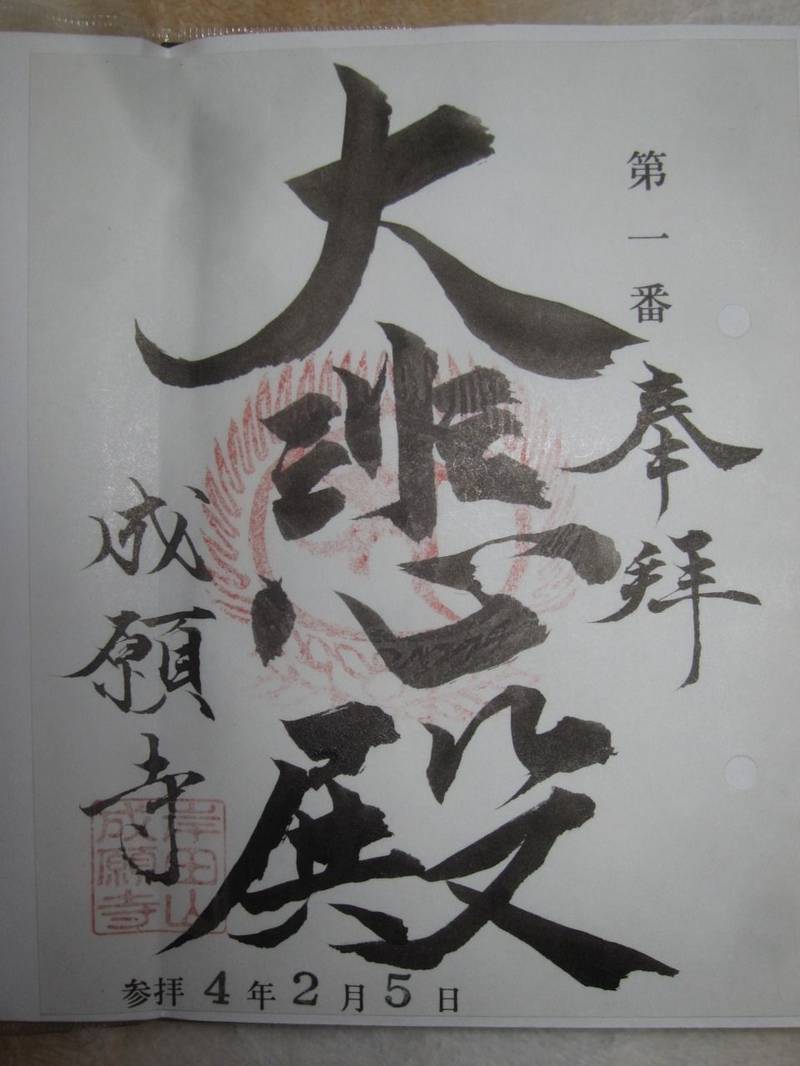 第一番
奉拝
大悲殿
成願寺
岸田山
成願寺
参拝4年2月5日